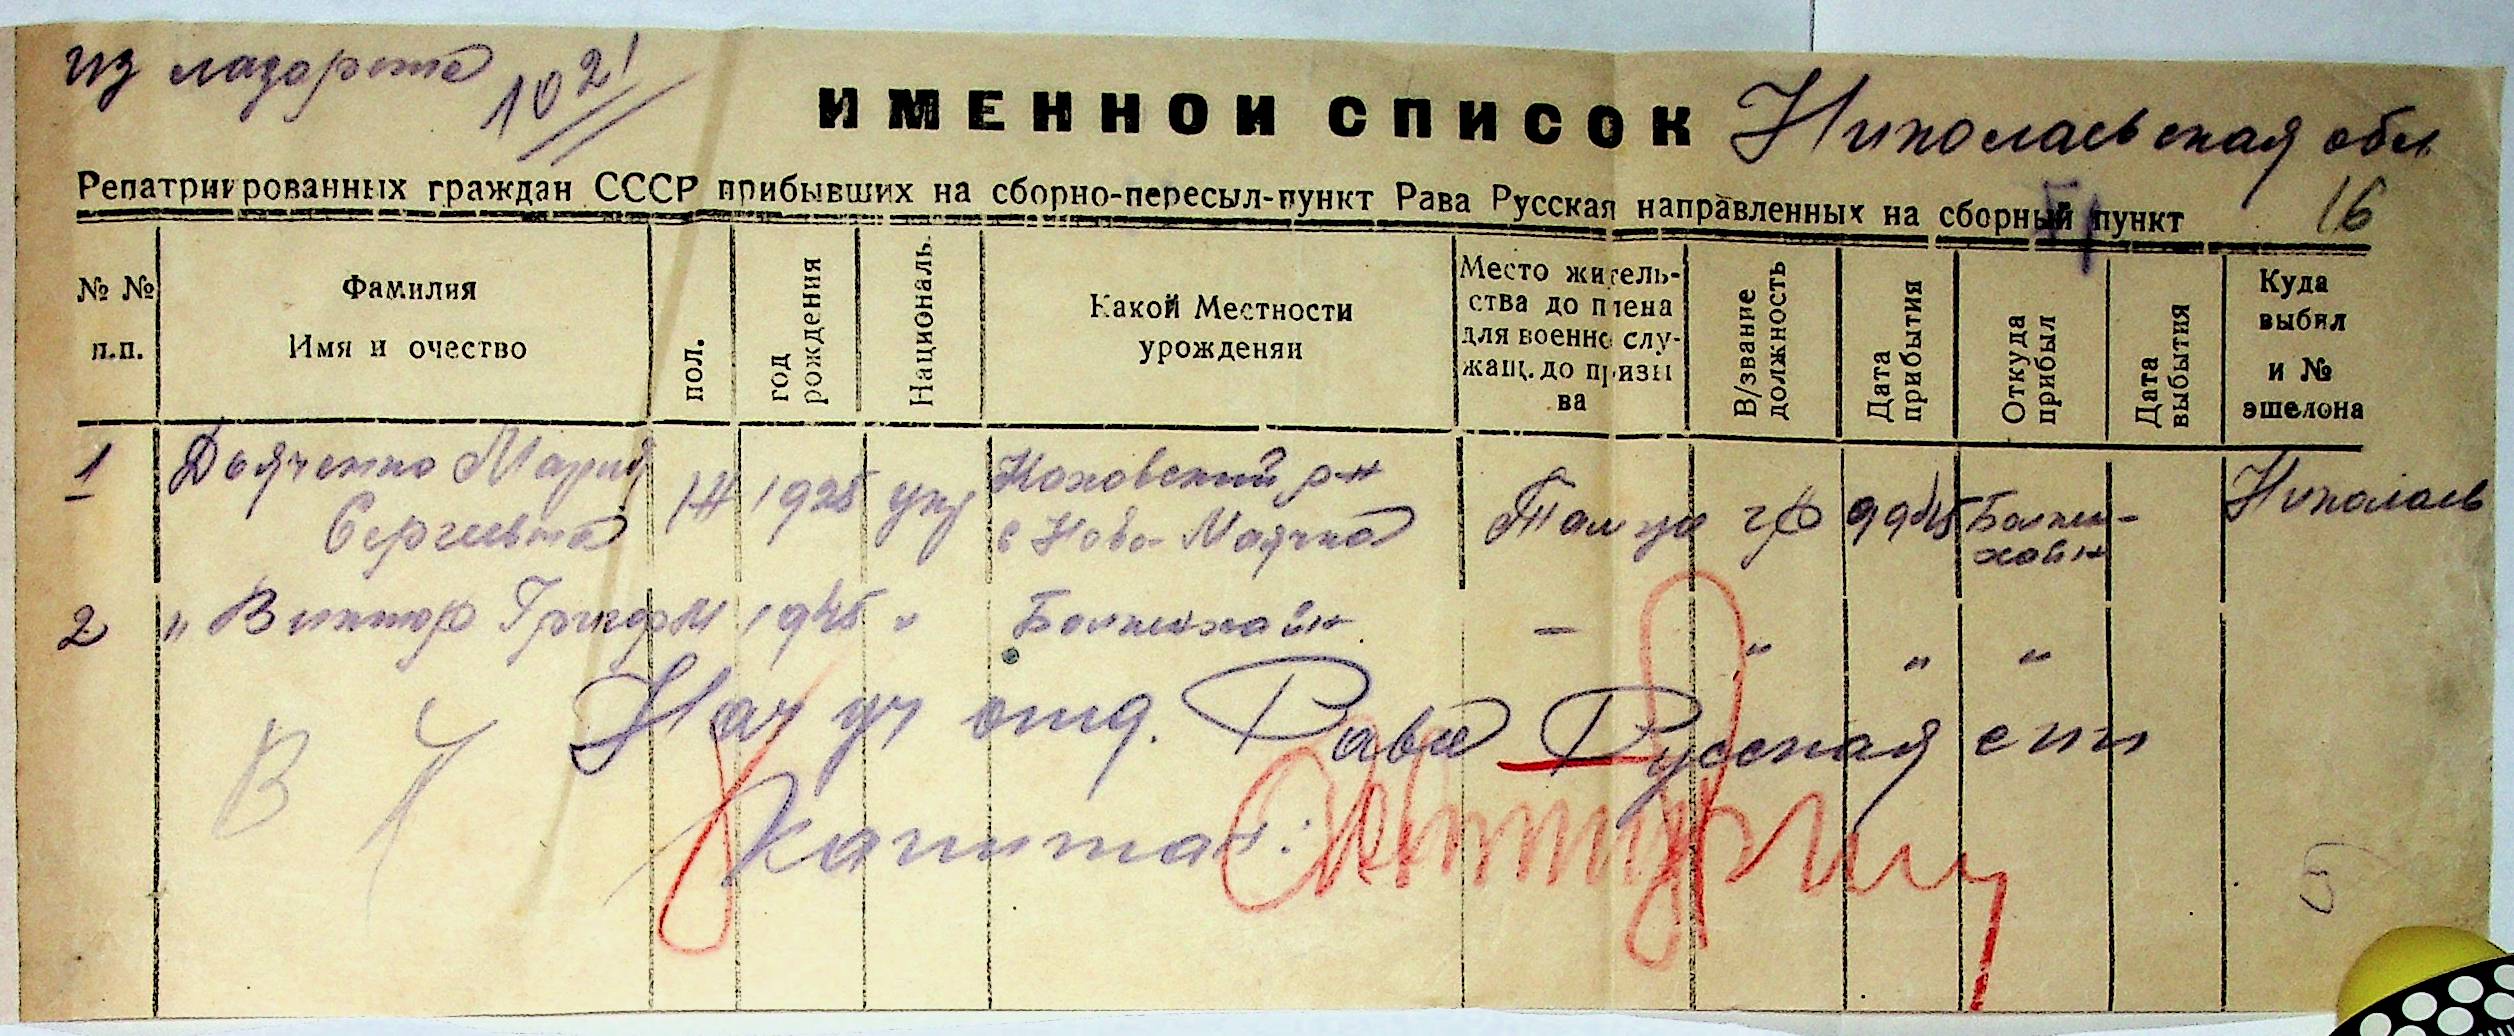 из лазарета 1021
ИМЕННОЙ СПИСОК Николаевская обл
Репатриированных граждан СССР прибывших на сборно-пересыл-пункт Рава Русская направленных на сборный пункт 16
№ № п.п.
Фамилия
Имя и очество
пол.
год рождения
Националь.
Какой Местности
урожденян
Место житель-
ства до плена
для военно слу-
жащ. до призы
ва
В/звание должность
Дата прибытия
Откуда прибыл
Дата выбытия
Куда
выбил
и №
эшелона
1 Дьяченко Мария Сергеевна Ж 1925 укр Каховский р-н с Ново-Маячка Там же г/ф 9 9 45 Болкен-хайн Николаев
2 " Виктор Григор М 1945 " Болкенхайн — " " "
Нач уч отд. Рава Русская спп
Капитан:
В
5